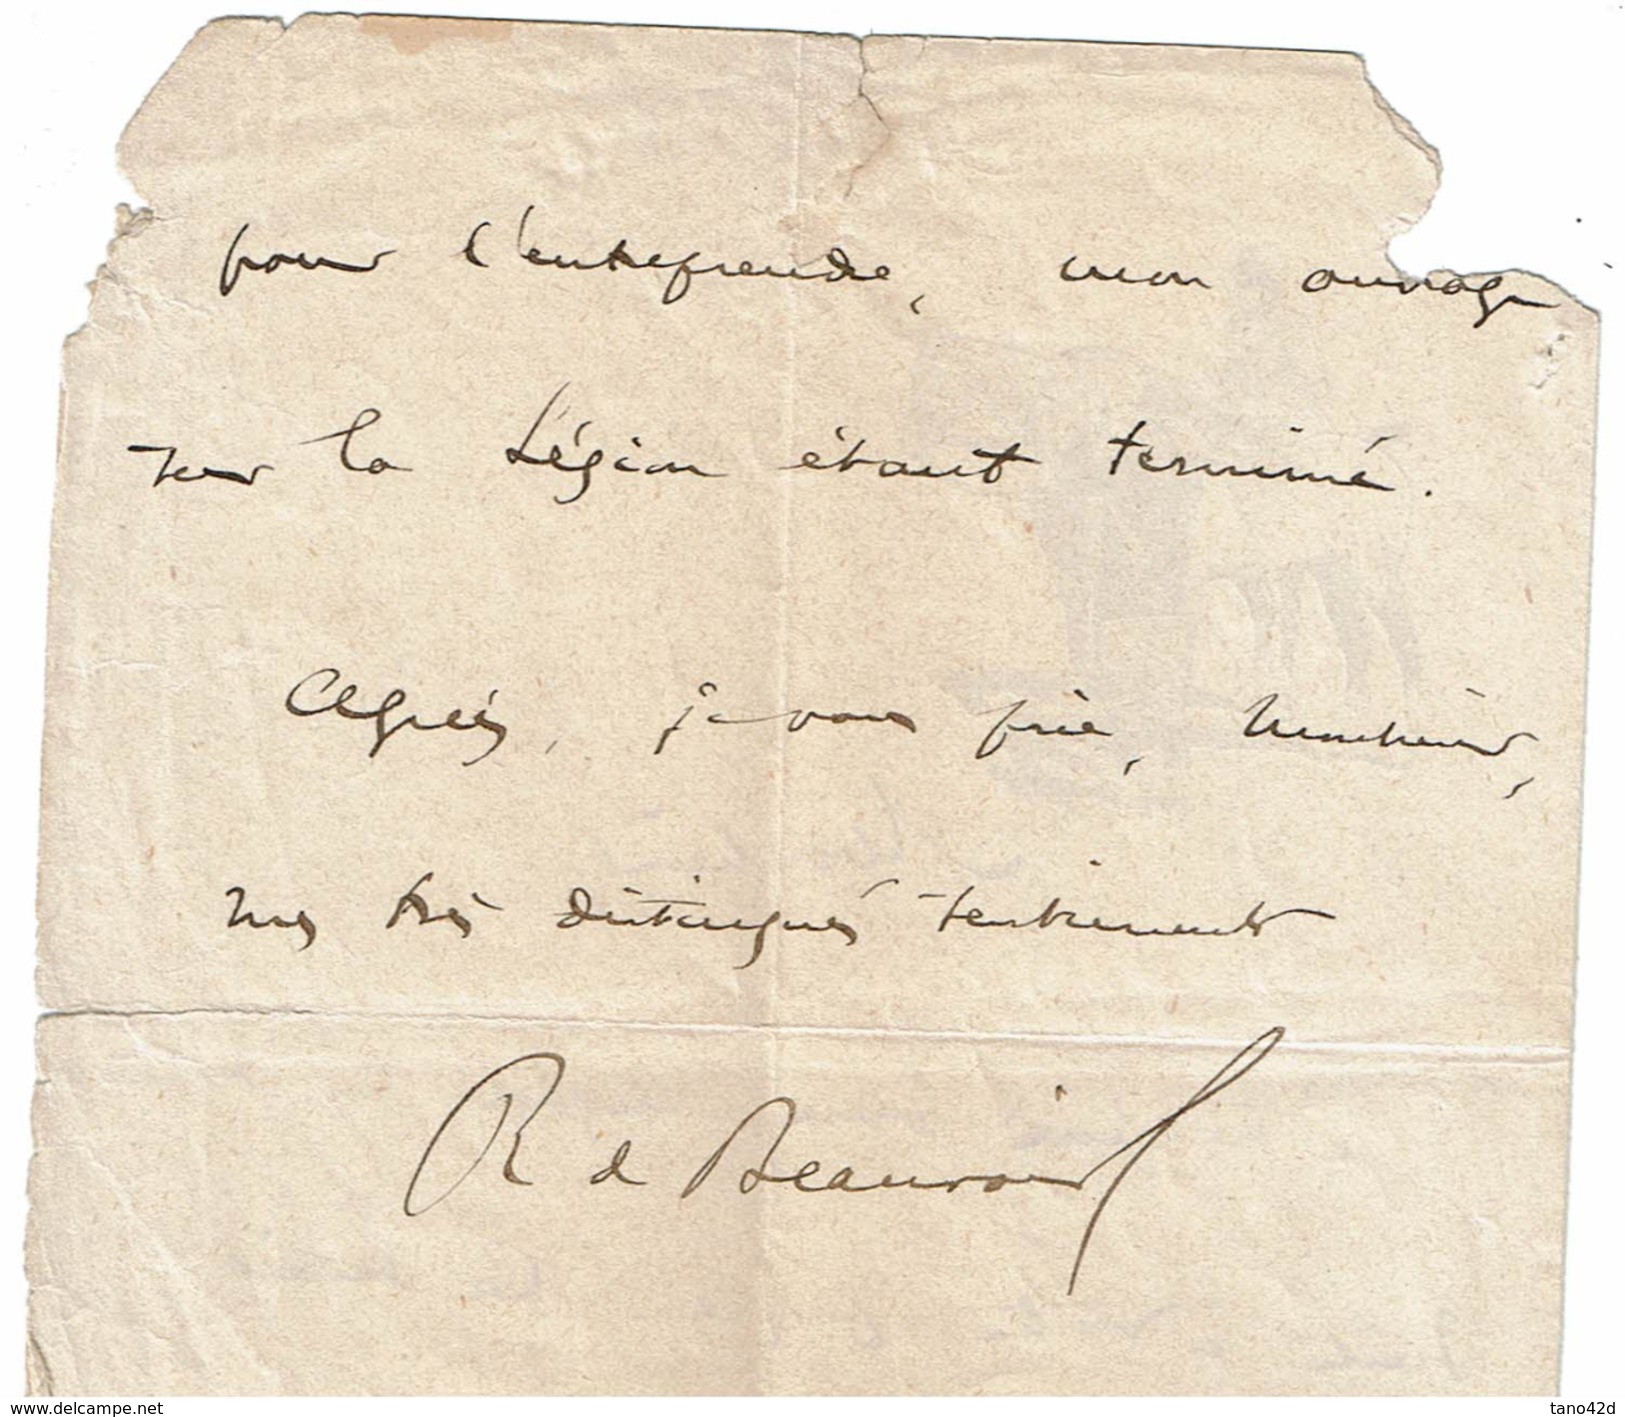 pour l'entreprendre, mon ouvrage
sur la Légion étant terminé.
Agréez, je vous prie, Monsieur,
mes très distingués sentiments
R de Beauvoir
www.delcampe.net
tano42d